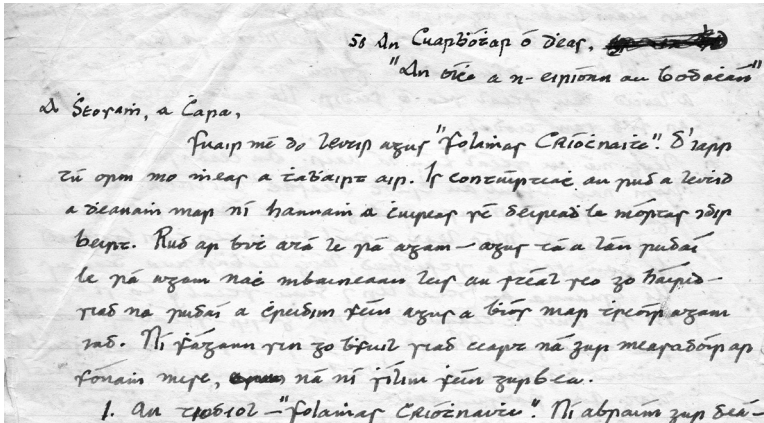 58 An Cuarḃóṫar ó ḋeas,
"An a n-eiríonn an
A Ṡeosaiṁ, a Ċara,
Fuair mé do leitir agus "Folaṁas Críoċnaiṫe". D'iarr
tú orm mo ṁeas a ṫaḃairt air. Is contúirteaċ an rud a leitéid
a ḋeanaṁ mar ní hannaṁ a ċuireas sé deireaḋ le mórtas idir
beirt. Rud ar biṫ atá le rá agam — agus tá a lán rudaí
le rá agam naċ mbaineann leis an scéal seo go háiriḋ —
siad na rudaí a ċreidim féin agus a ḃíos mar ṫreoir agam
iad. Ní fágann sin go ḃfuil siad ceart ná gur measadóir ar
fónaṁ mise, ná ní ṡílim féin gurb ea.
1. An tiodal — "Folaṁas Críoċnaiṫe". Ní abraim gur deá-